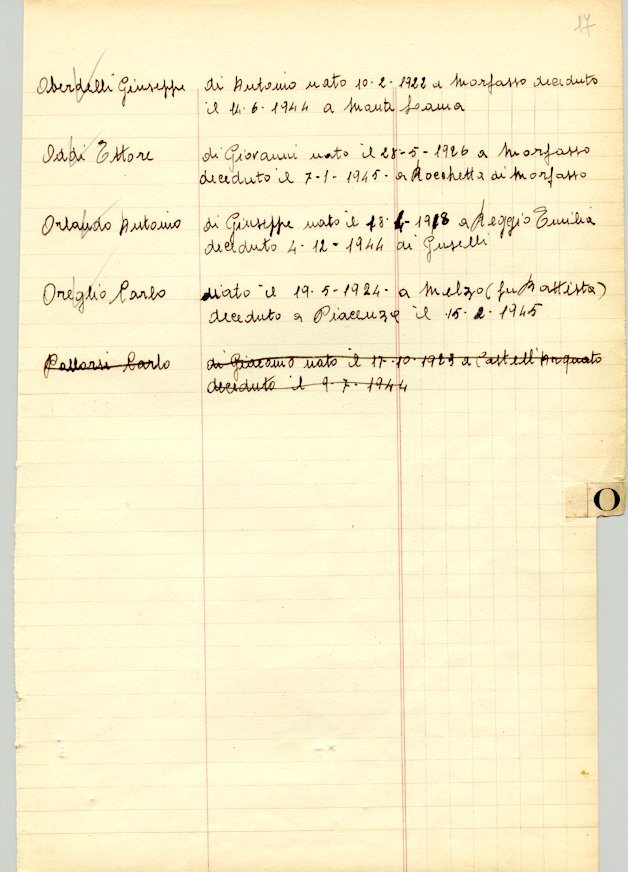 17
Oberdelli Giuseppe di Antonio nato 10-2-1922 a Morfasso deceduto
il 14-6-1944 a Manta Lama
Oddi Ettore di Giovanni nato il 28-5-1926 a Morfasso
deceduto il 7-1-1945- a Rocchetta di Morfasso
Orlando Antonio di Giuseppe nato il 18-4-1918 a Reggio Emilia
deceduto 4-12-1944 di Guselli
Oreglio Carlo nato il 19-5-1924- a Melzo (fu Battista)
deceduto a Piacenza il 15-2-1945
Pallarsi Carlo di Giacomo nato il 17-10-1923 a Castell'Arquato
deceduto il 9-7-1944
O